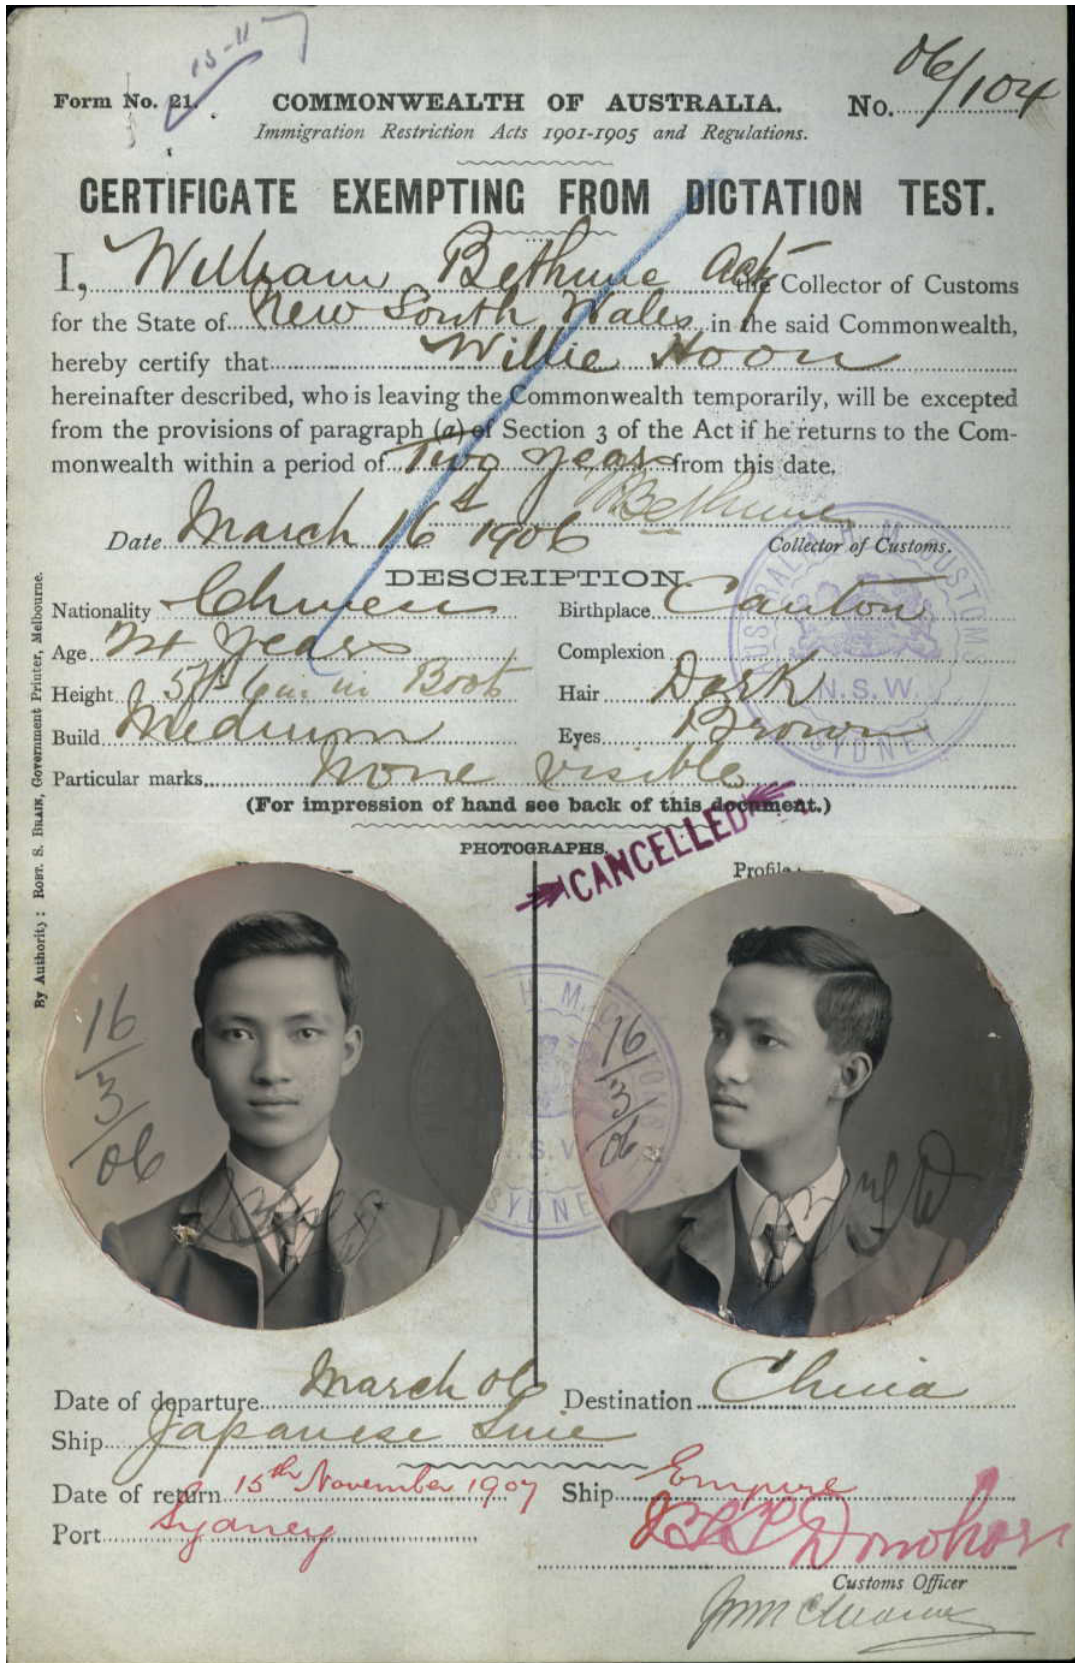 15-11-7
Form No. 21.
COMMONWEALTH OF AUSTRALIA.
No. 06/104
Immigration Restriction Acts 1901-1905 and Regulations.
CERTIFICATE EXEMPTING FROM DICTATION TEST.
I, William Bethune Actg the Collector of Customs
for the State of New South Wales in the said Commonwealth,
hereby certify that Willie Hoon
hereinafter described, who is leaving the Commonwealth temporarily, will be excepted
from the provisions of paragraph (a) of Section 3 of the Act if he returns to the Com-
monwealth within a period of Two years from this date.
Bethune
Date March 16 1906 Collector of Customs.
DESCRIPTION.
Nationality Chinese Birthplace Canton
Age years Complexion
Height 5ft 6in in Boots Hair Dark
Build Medium Eyes Brown
Particular marks None visible
(For impression of hand see back of this document.)
AUSTRALIA H. M. CUSTOMS
N.S.W.
SYDNEY
By Authority: ROBT. S. BRAIN, Government Printer, Melbourne.
CANCELLED
PHOTOGRAPHS.
Profile:—
16/3/06
16/3/06
H. M. CUSTOMS
N.S.W.
SYDNEY
Date of departure March 06 Destination China
Ship Japanese Line
Date of return 15th November 1907 Ship Empire
Port Sydney Donohoe
Customs Officer